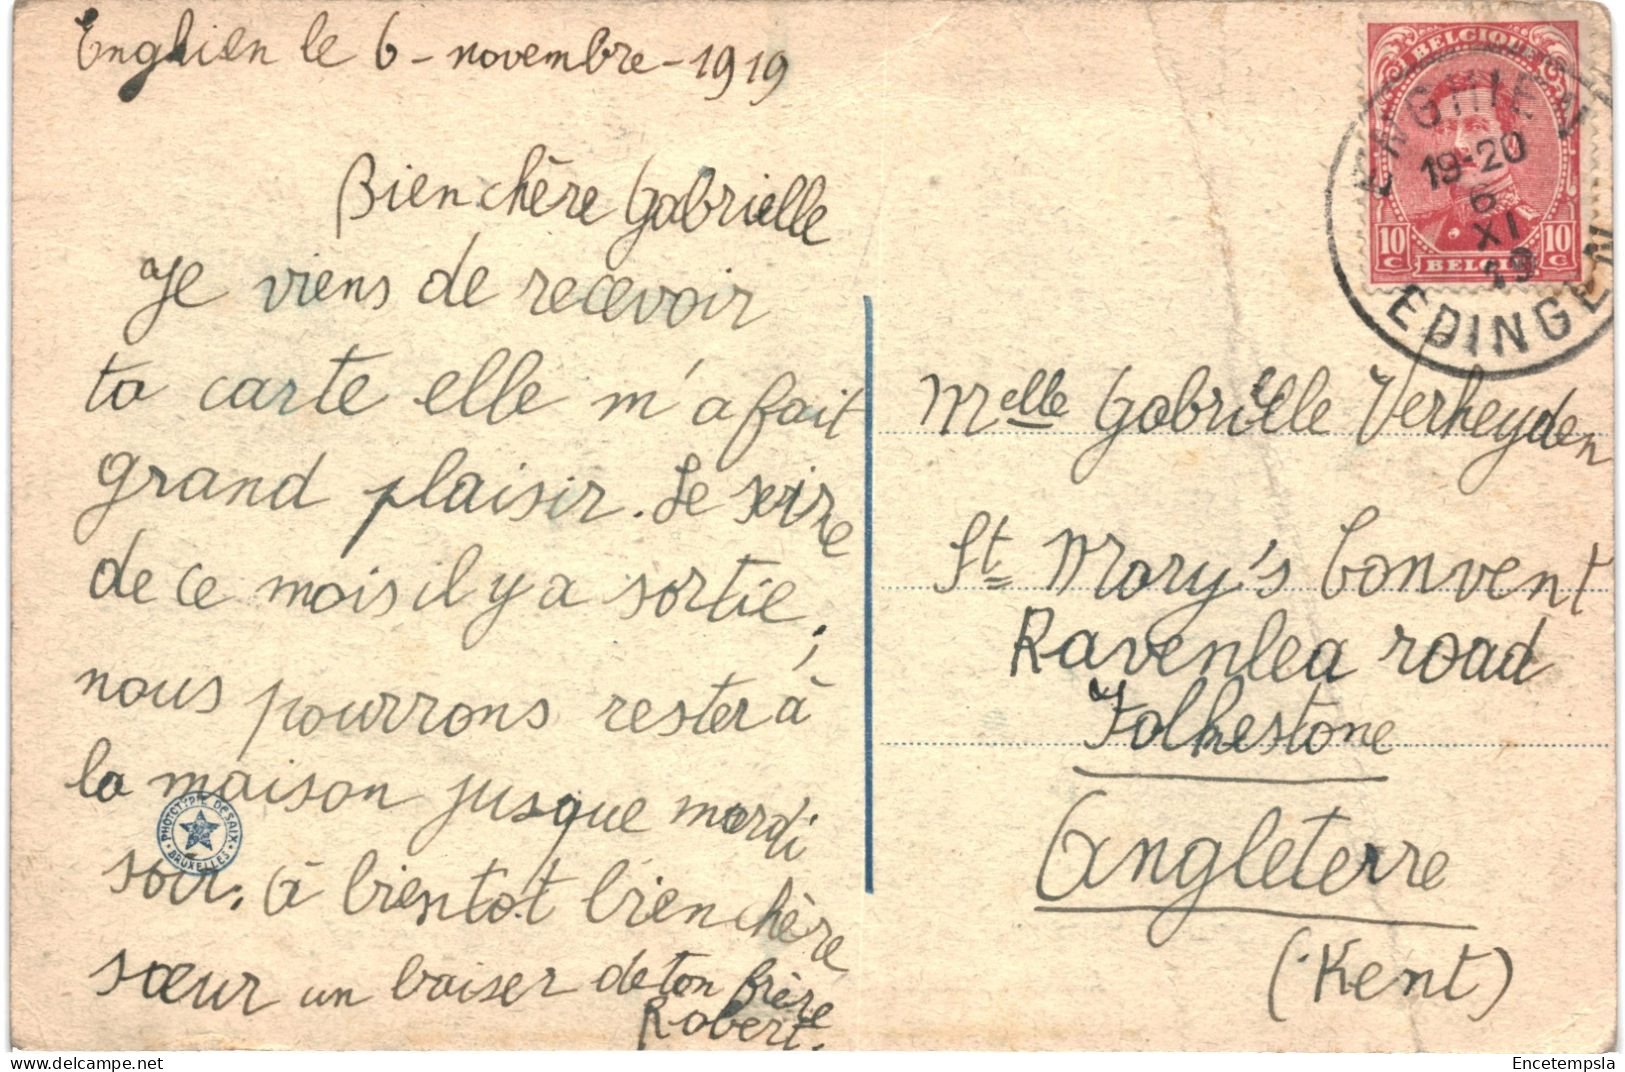 Enghien le 6 - novembre - 1919
Bien chère Gabrielle
Je viens de recevoir
ta carte elle m'a fait
grand plaisir. Le
de ce mois il y a sortie,
nous pourrons rester à
la maison jusque mardi
soir. à bientot bien chère
sœur un baiser de ton frère
Robert.
PHOTOTYPIE DESAIX
BRUXELLES
BELGIQUE
10 C
10 C
BELGIE
ENGHIEN
19-20
6
XI
19
EDINGEN
Melle Gabrielle Verheyden
St Mary's Convent
Ravenlea road
Folkestone
Angleterre
(Kent)
Encetempsla